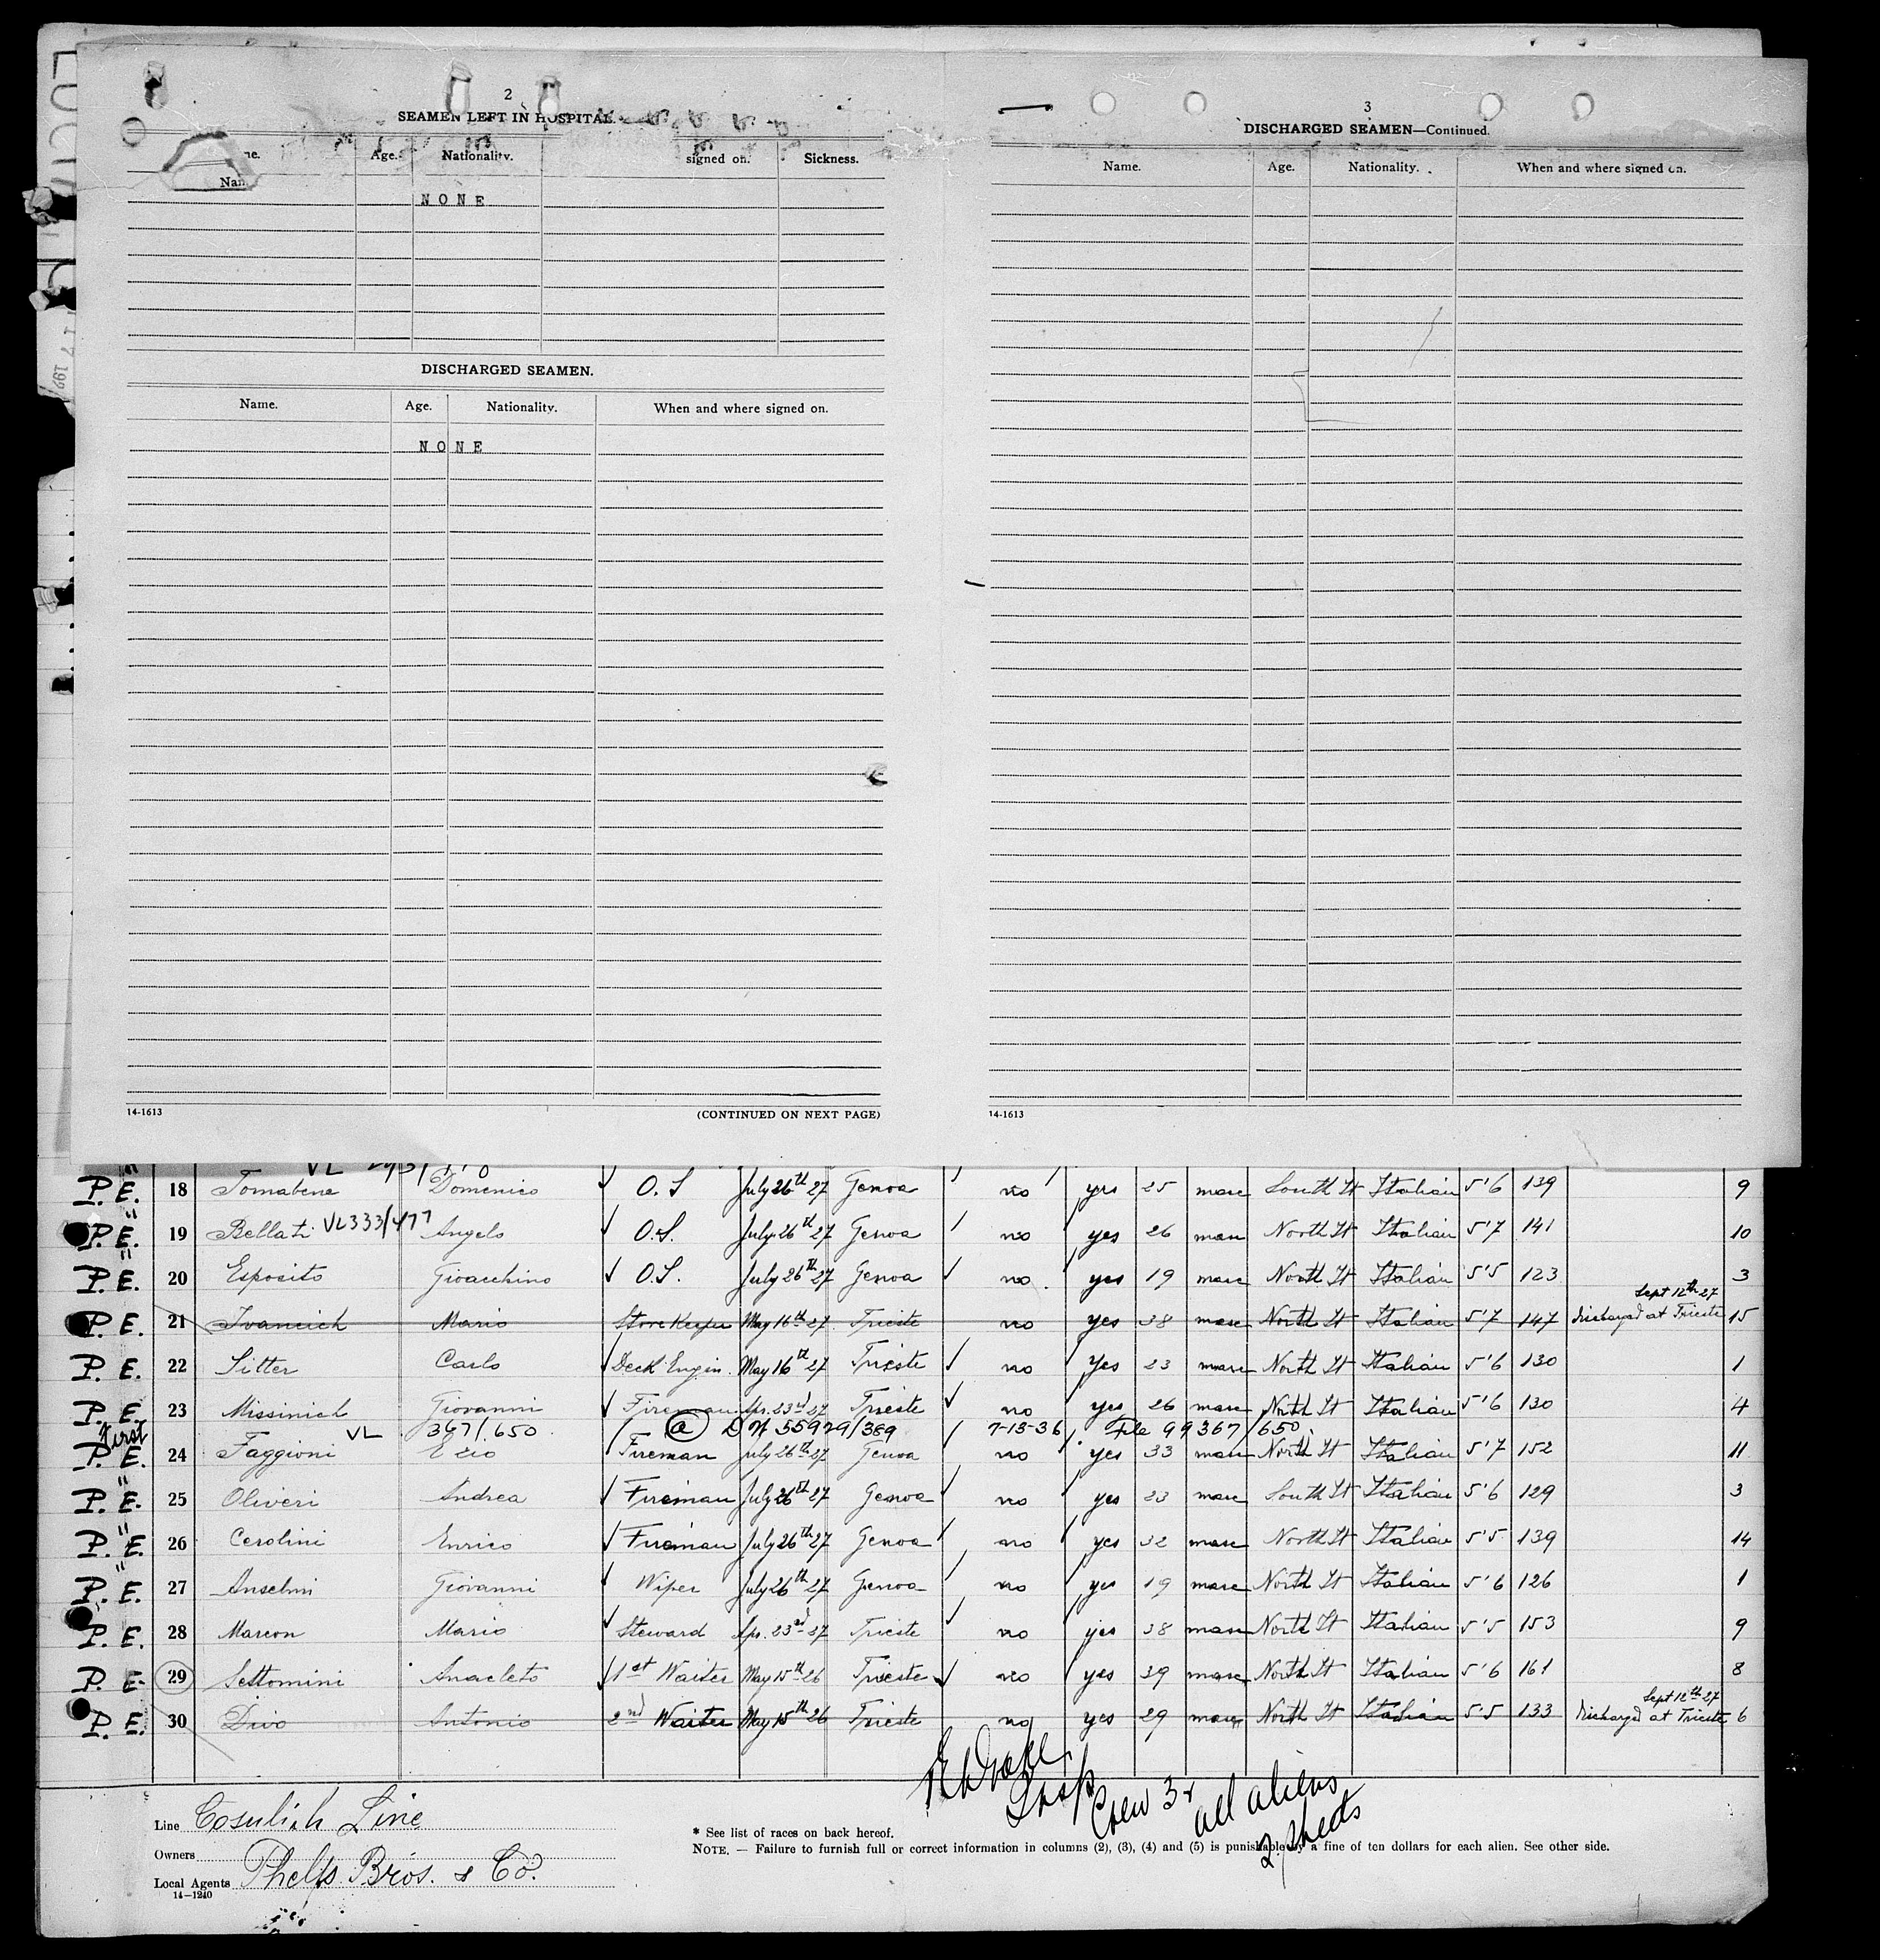 2
SEAMEN LEFT IN HOSPITAL
Age. Nationality. signed on. Sickness.
NONE
DISCHARGED SEAMEN.
Name. Age. Nationality. When and where signed on.
NONE
14-1613 (CONTINUED ON NEXT PAGE)
3
DISCHARGED SEAMEN—Continued.
Name. Age. Nationality. When and where signed on.
14-1613
P. E. 18 Tomabene Domenico O. S July 26th 27 Genoa no yes 25 masc South It Italian 5'6 139 9
VL333/477
P. E. 19 Bellati Angelo O.S. July 26th 27 Genoa no yes 26 masc North It Italian 5'7 141 10
P. E. 20 Esposito Gioacchino O.S. July 26th 27 Genoa no yes 19 masc North It Italian 5'5 123 3
Sept 12th 27
P. E. 21 Ivancich Mario Storekeeper May 16th 27 Trieste no yes 38 masc North It Italian 5'7 147 Discharged at Trieste 15
P. E. 22 Sitter Carlo Deck Engin. May 16th 27 Trieste no yes 23 masc North It Italian 5'6 130 1
P. E. 23 Missinich Giovanni Fireman Apr. 23d 27 Trieste no yes 26 masc North It Italian 5'6 130 4
First VL 367/650 a 55979/389 7-13-36 File 99367/650
P. E. 24 Faggioni Ezio Fireman July 26th 27 Genoa no yes 33 masc North It Italian 5'7 152 11
P. E. 25 Oliveri Andrea Fireman July 26th 27 Genoa no yes 23 masc South It Italian 5'6 129 3
P. E. 26 Cerolini Enrico Fireman July 26th 27 Genoa no yes 32 masc North It Italian 5'5 139 14
P. E. 27 Anselmi Giovanni Wiper July 26th 27 Genoa no yes 19 masc North It Italian 5'6 126 1
P. E. 28 Marcon Mario Steward Apr. 23rd 27 Trieste no yes 38 masc North It Italian 5'5 153 9
P. E. 29 Settomini Anacleto 1st Waiter May 15th 26 Trieste no yes 39 masc North It Italian 5'6 161 8
Sept 12th 27
P. E. 30 Divo Antonio 2nd Waiter May 15th 26 Trieste no yes 29 masc North It Italian 5'5 133 Discharged at Trieste 6
Insp
Crew 32 all aliens
2 sheets
Line Cosulich Line
Owners
Local Agents Phelps Bros. & Co.
14—1240
* See list of races on back hereof.
NOTE. — Failure to furnish full or correct information in columns (2), (3), (4) and (5) is punishable by a fine of ten dollars for each alien. See other side.